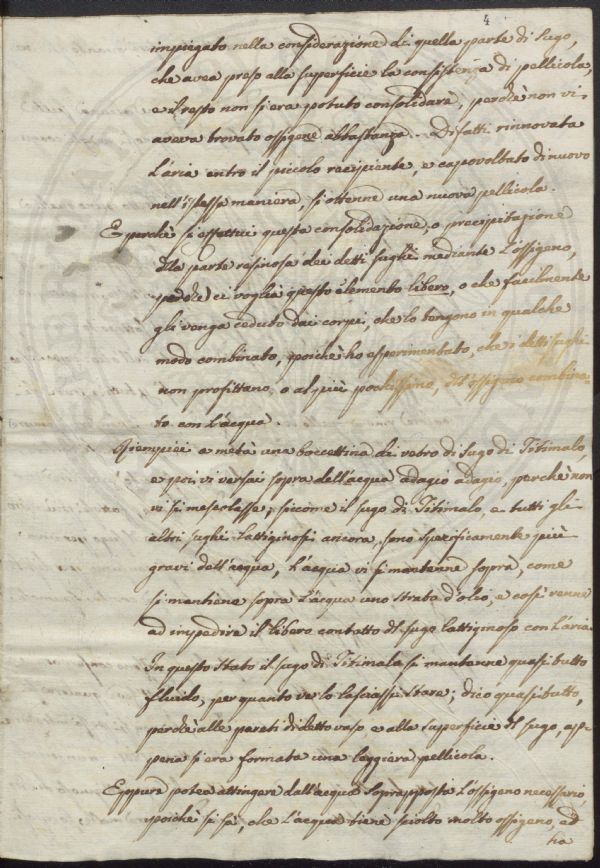 4
impiegato nella considerazione di quella parte di sugo,
che avea preso alla superficie la consistenza di pellicola,
e il resto non si era potuto consolidare, perchè non vi
aveva trovato ossigene abbastanza. Difatti rinnovata
l'aria entro il piccolo recipiente, e capovoltato di nuovo
nell'istessa maniera, si ottenne una nuova pellicola.
E perchè si effettui questa consolidazione, o precipitazione
della parte resinosa dei detti sughi mediante l'ossigeno,
perchè ci voglia questo elemento libero, o che facilmente
gli venga ceduto dai corpi, che lo tengono in qualche
modo combinato, poichè ho esperimentato, che i detti sughi
non profittano, o al più pochissimo, dell'ossigeno combina-
to con l'acqua.
Riempiei a metà una boccettina di vetro di sugo di Titimalo,
e poi vi versai sopra dell'acqua adagio adagio, perchè non
vi si mescolasse; siccome il sugo di Titimalo, e tutti gli
altri sughi lattiginosi ancora, sono specificamente più
gravi dell'acqua, l'acqua vi si mantenne sopra, come
si mantiene sopra l'acqua uno strato d'olio, e così venne
ad impedire il libero contatto del sugo lattiginoso con l'aria.
In questo stato il sugo di Titimalo si mantenne quasi tutto
fluido, per quanto ve lo lasciassi stare; dico quasi tutto,
perchè alle pareti di detto vaso e alla superficie del sugo, ap-
pena si era formata una leggiera pellicola.
Eppure potea attingere dall'acqua soprapposta l'ossigeno necessario,
poichè si sà, che l'acqua tiene sciolto molto ossigeno, ed
ha